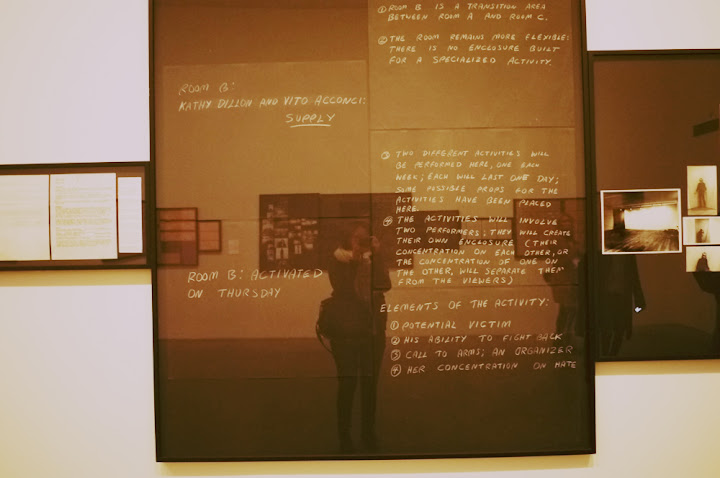 ROOM B:
KATHY DILLON AND VITO ACCONCI:
SUPPLY
ROOM B: ACTIVATED
ON THURSDAY
① ROOM B IS A TRANSITION AREA
BETWEEN ROOM A AND ROOM C.
② THE ROOM REMAINS MORE FLEXIBLE:
THERE IS NO ENCLOSURE BUILT
FOR A SPECIALIZED ACTIVITY.
③ TWO DIFFERENT ACTIVITIES WILL
BE PERFORMED HERE, ONE EACH
WEEK; EACH WILL LAST ONE DAY;
SOME POSSIBLE PROPS FOR THE
ACTIVITIES HAVE BEEN PLACED
HERE.
④ THE ACTIVITIES WILL INVOLVE
TWO PERFORMERS; THEY WILL CREATE
THEIR OWN ENCLOSURE (THEIR
CONCENTRATION ON EACH OTHER, OR
THE CONCENTRATION OF ONE ON
THE OTHER, WILL SEPARATE THEM
FROM THE VIEWERS)
ELEMENTS OF THE ACTIVITY:
① POTENTIAL VICTIM
② HIS ABILITY TO FIGHT BACK
③ CALL TO ARMS; AN ORGANIZER
④ HER CONCENTRATION ON HATE